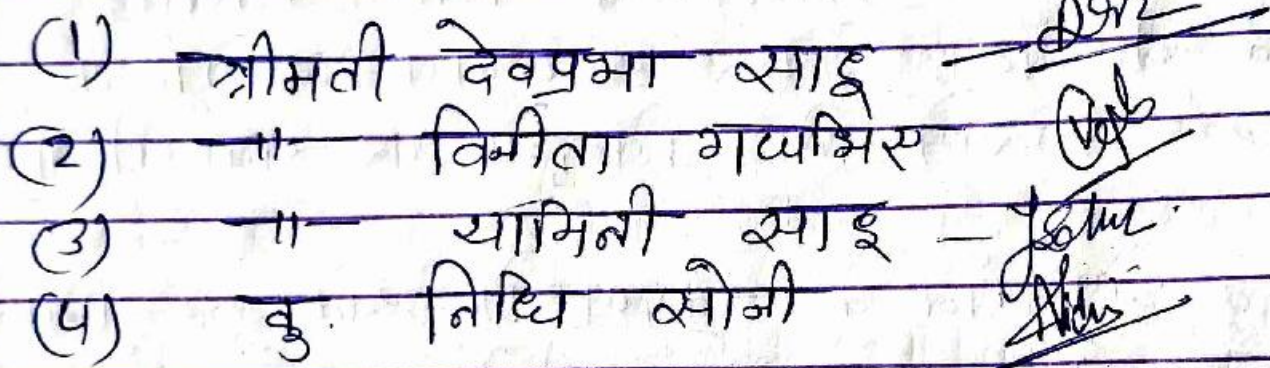 (1) श्रीमती देवप्रभा साहू -
(2) -"- विनीता
(3) -"- यामिनी साहू -
(4) कु. निधि सोनी